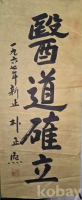 醫道確立
一九六七年新正 朴正熙